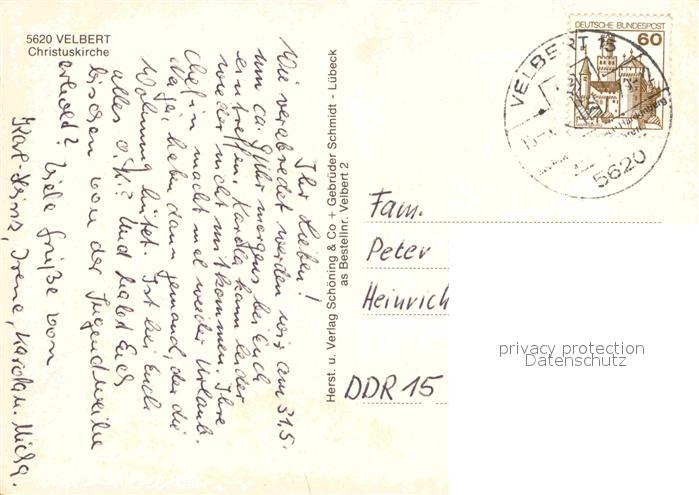 5620 VELBERT
Christuskirche
Ihr Lieben!
Wie verabredet werden wir am 31.5.
um ca. 9 Uhr morgens bei Euch
eintreffen. Karola kann leider
wieder nicht mitkommen. Ihre
Chefin macht mal wieder Urlaub.
Dafür haben dann jemand, der die
Wohnung hütet. Ist bei Euch
alles o.k.? Und habt Euch
bischen von der Jugendweihe
erholt? Viele Grüße von
Karl-Heinz, Irene, Karola u. Micha.
Herst. u. Verlag Schöning & Co + Gebrüder Schmidt - Lübeck
as Bestellnr. Velbert 2
DEUTSCHE BUNDESPOST
60
VELBERT 15
5620
Fam.
Peter
Heinrich
DDR 15
privacy protection
Datenschutz